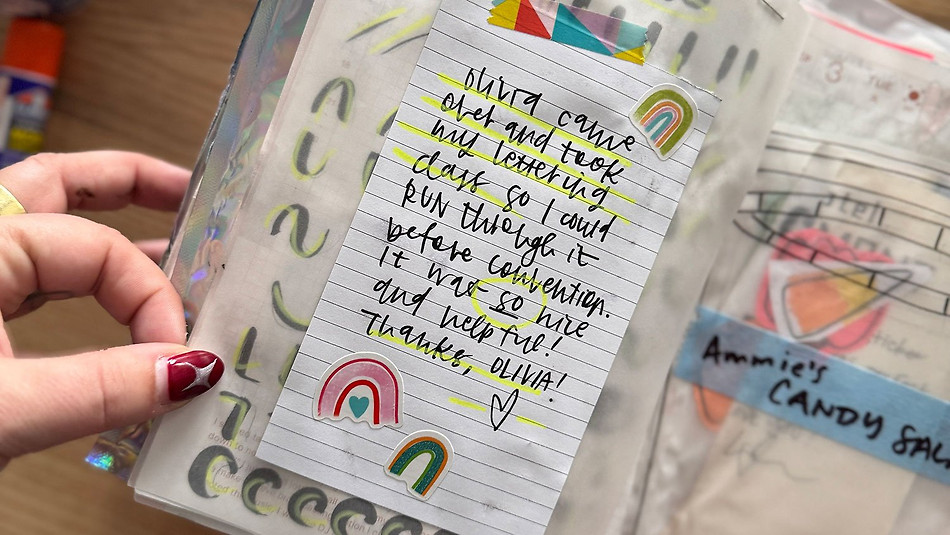 olivia came
over and took
my lettering
class so I could
RUN through it
before convention.
it was so nice
and helpful!
Thanks, OLIVIA!
Ammie's
CANDY